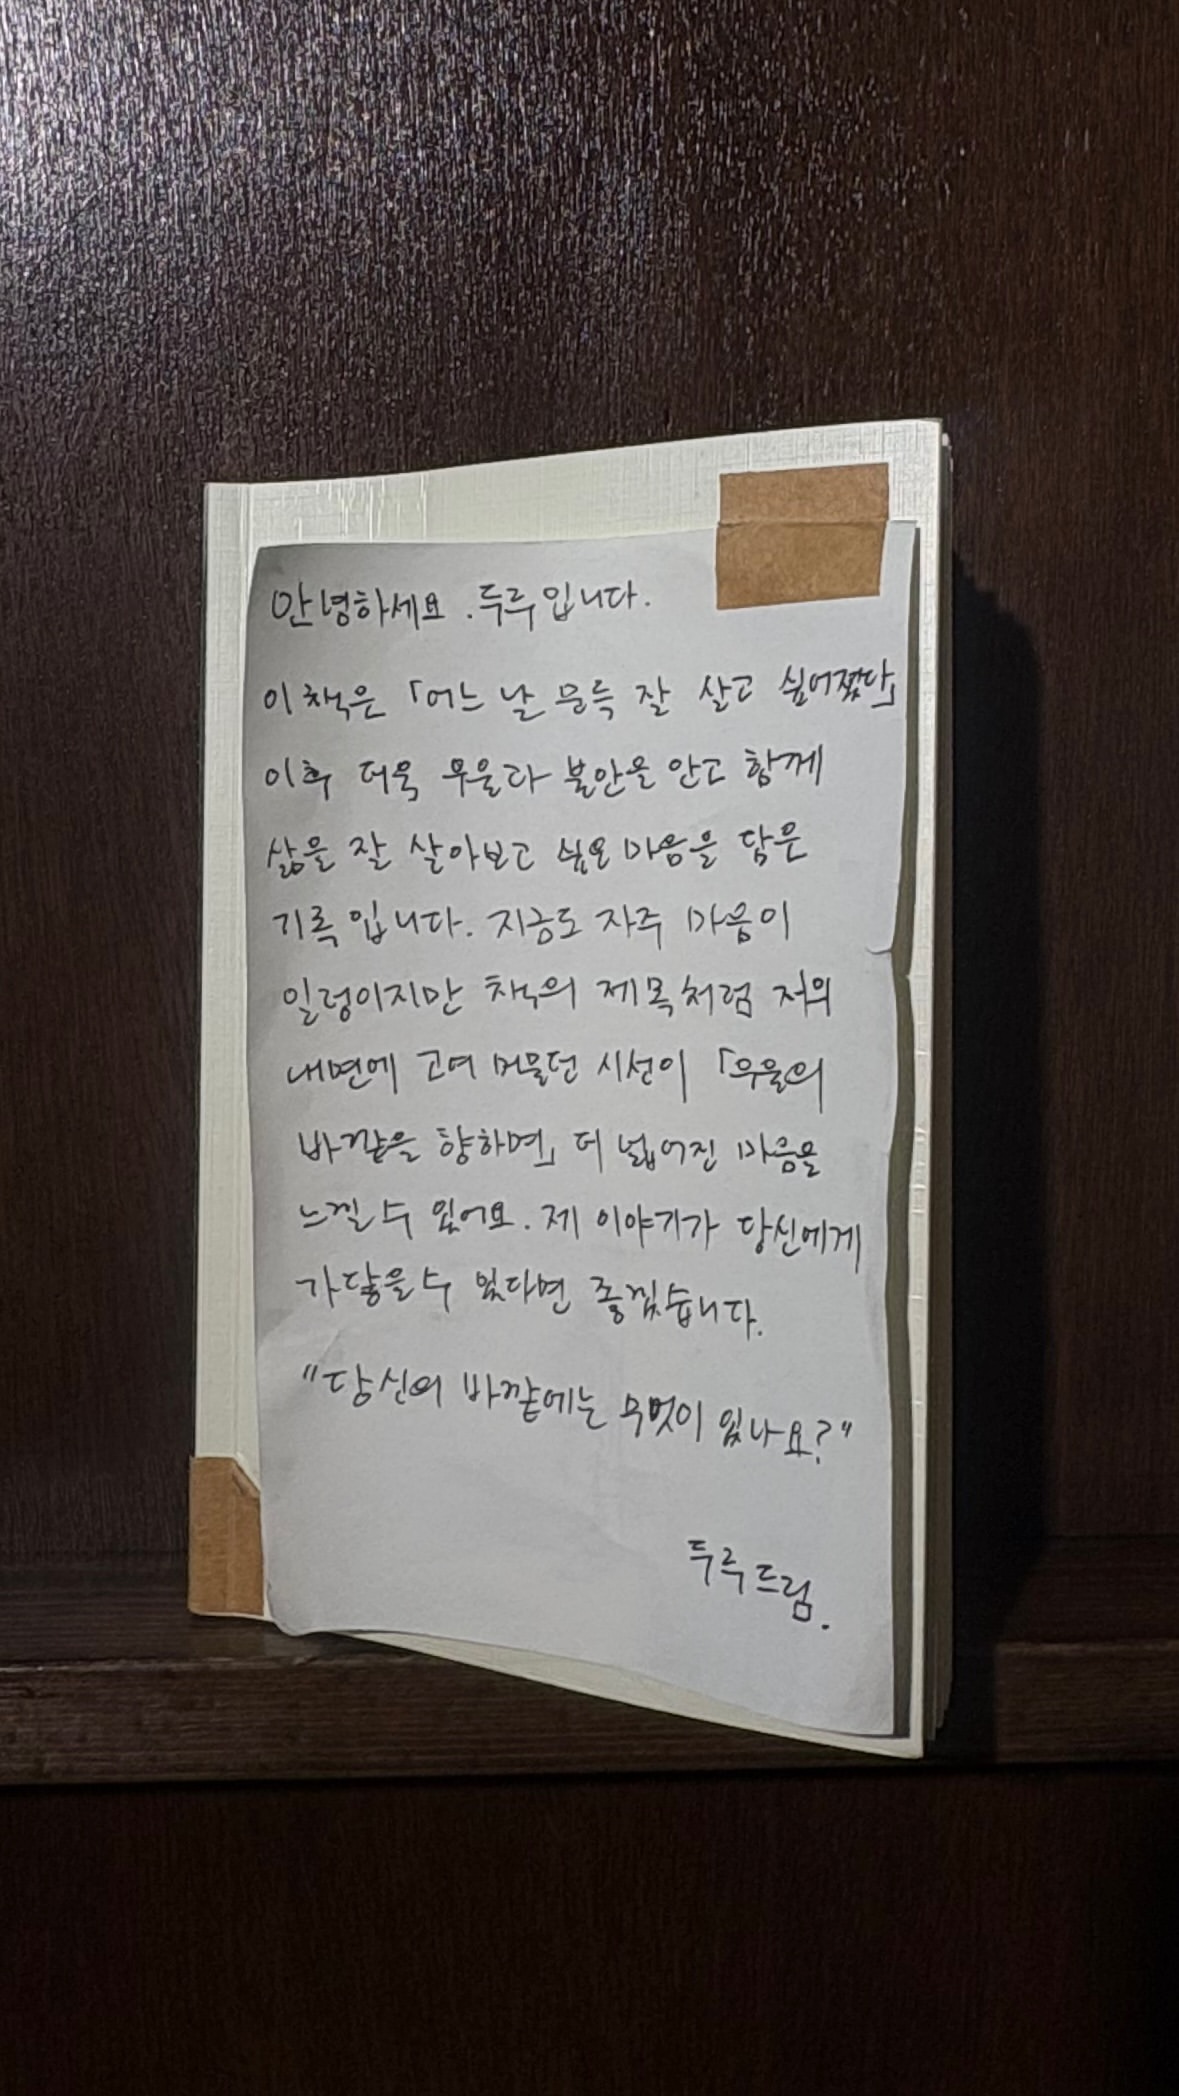 안녕하세요. 두루입니다.
이 책은 「어느 날 문득 잘 살고 싶어졌다」
이후 더욱 우울과 불안을 안고 함께
삶을 잘 살아보고 싶은 마음을 담은
기록입니다. 지금도 자주 마음이
일렁이지만 책의 제목처럼 저의
내면에 고여 머물던 시선이 「우울의
바깥을 향하며」 더 넓어진 마음을
느낄 수 있어요. 제 이야기가 당신에게
가닿을 수 있다면 좋겠습니다.
"당신의 바깥에는 무엇이 있나요?"
두루 드림.